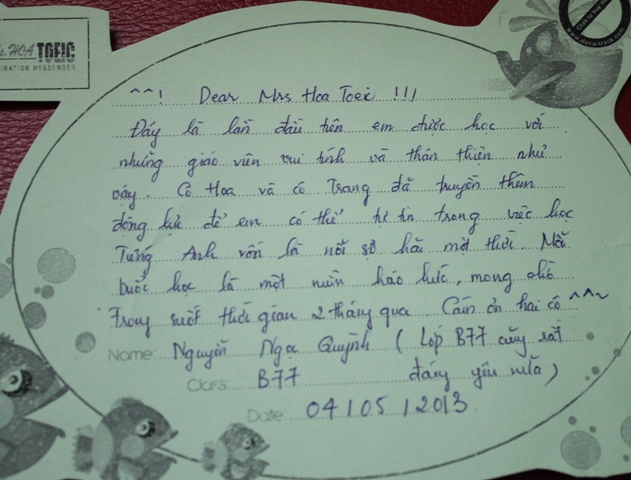 s. HOA TOEIC
IRATION MESSENGER
^^! Dear Mrs Hoa Toeic !!!
Đây là lần đầu tiên em được học với
những giáo viên vui tính và thân thiện như
vậy. Cô Hoa và cô Trang đã truyền thêm
động lực để em có thể tự tin trong việc học
Tiếng Anh vốn là nỗi sợ hãi một thời. Mỗi
buổi học là một niềm háo hức, mong chờ
Trong suốt thời gian 2 tháng qua. Cám ơn hai cô ^^~
Name: Nguyễn Ngọc Quỳnh ( Lớp B77 cũng rất
Class: B77 đáng yêu nữa )
Date: 04/05/2013